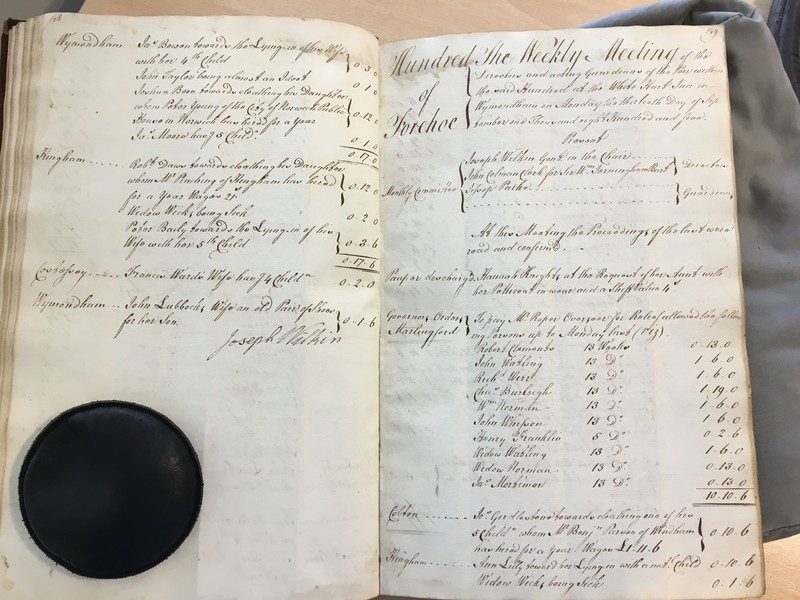 168
Wymondham Jas. Bowen towards the Lying-in of his Wife
with her 4th Child 0-3-0
John Taylor being almost an Ideot 0-1-0
Joshua Been towards cloathing his Daughter
whom Peter Young of the City of Norwich Public
House in Norwich has hired for a Year 0-12-0
Jas. Moore has 5 Childn. 0-1-0
0-17-0
Hingham Robt. Daws towards cloathing his Daughter
whom Mr. of Hingham has hired
for a Year Wages 21s. 0-12-0
Widow Weeks being Sick 0-2-0
Peter Baily towards the Lying-in of his
Wife with her 5th Child 0-3-6
0-17-6
Costessey Francis Wards Wife has 4 Childn. 0-2-0
Wymondham John Lubbocks Wife an old Pair of Shoes
for her Son 0-1-6
Joseph Wilkin
169
Hundred The Weekly Meeting of the
of Directors and acting Guardians of the Poor within
Forehoe the said Hundred at the White Hart Inn in
Wymondham on Monday the thirtieth Day of Sep
tember one Thousand eight Hundred and five.
Present
Monthly Committee Joseph Wilkin Gent. in the Chair
John Colman Clerk for Sir Wm. Jerningham Bart. Director
Jessop Parke Guardians
At this Meeting the Proceedings of the last were
read and confirm'd.
Pauper discharg'd Hannah Knights at the Request of her Aunt with
her Petticoat in wear and a Shift Value 4s
Governors Orders To pay Mr. Roper Overseer for Relief allowed the follow
Marlingford ing Persons up to Monday last
Robert Clements 13 Weeks 0-13-0
John Watling 13 Do. 1-6-0
Richd. Wirr 13 Do. 1-6-0
Chas. Burleigh 13 Do. 1-19-0
Wm. Norman 13 Do. 1-6-0
John Whisson 13 Do. 1-6-0
Henry Franklin 5 Do. 0-2-6
Widow Watling 13 Do. 1-6-0
Widow Norman 13 Do. 0-13-0
Jas. Mortimer 13 Do. 0-13-0
10-10-6
Colton Jas. Girdlestone towards cloathing one of his
5 Childn. whom Mr. Benjn. Parson of Windham
has hired for a Year Wages £1-11-6 0-10-6
Hingham Ann Lilly toward her Lying-in with a Child 0-10-6
Widow Weeks being Sick 0-1-6